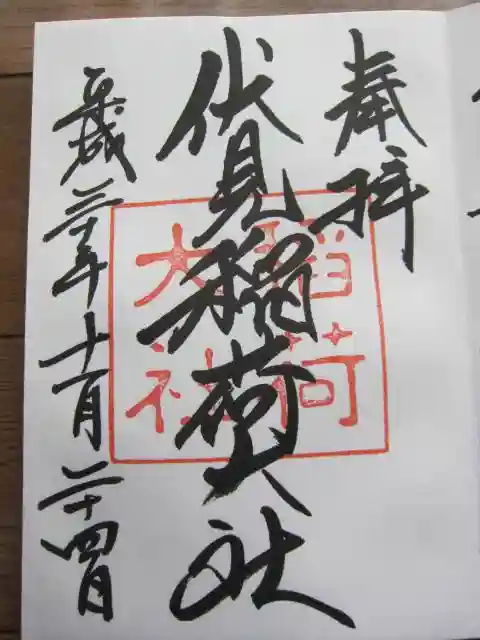 奉拝
伏見稲荷大社
平成三十年十一月二十四日
稲荷
大社